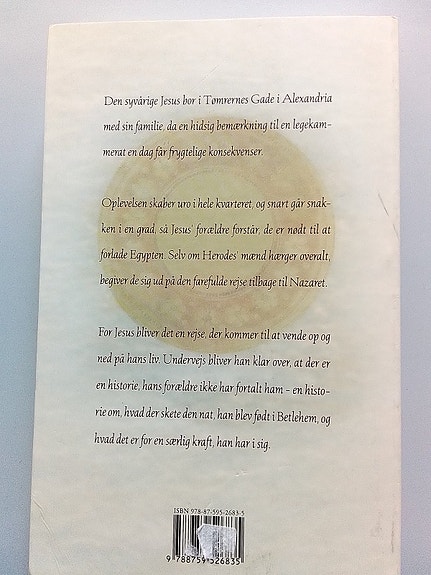 Den syvårige Jesus bor i Tømrernes Gade i Alexandria
med sin familie, da en hidsig bemærkning til en legekam-
merat en dag får frygtelige konsekvenser.
Oplevelsen skaber uro i hele kvarteret, og snart går snak-
ken i en grad, så Jesus' forældre forstår, de er nødt til at
forlade Egypten. Selv om Herodes' mænd hærger overalt,
begiver de sig ud på den farefulde rejse tilbage til Nazaret.
For Jesus bliver det en rejse, der kommer til at vende op og
ned på hans liv. Undervejs bliver han klar over, at der er
en historie, hans forældre ikke har fortalt ham – en histo-
rie om, hvad der skete den nat, han blev født i Betlehem, og
hvad det er for en særlig kraft, han har i sig.
ISBN 978-87-595-2683-5
9 788759 526835